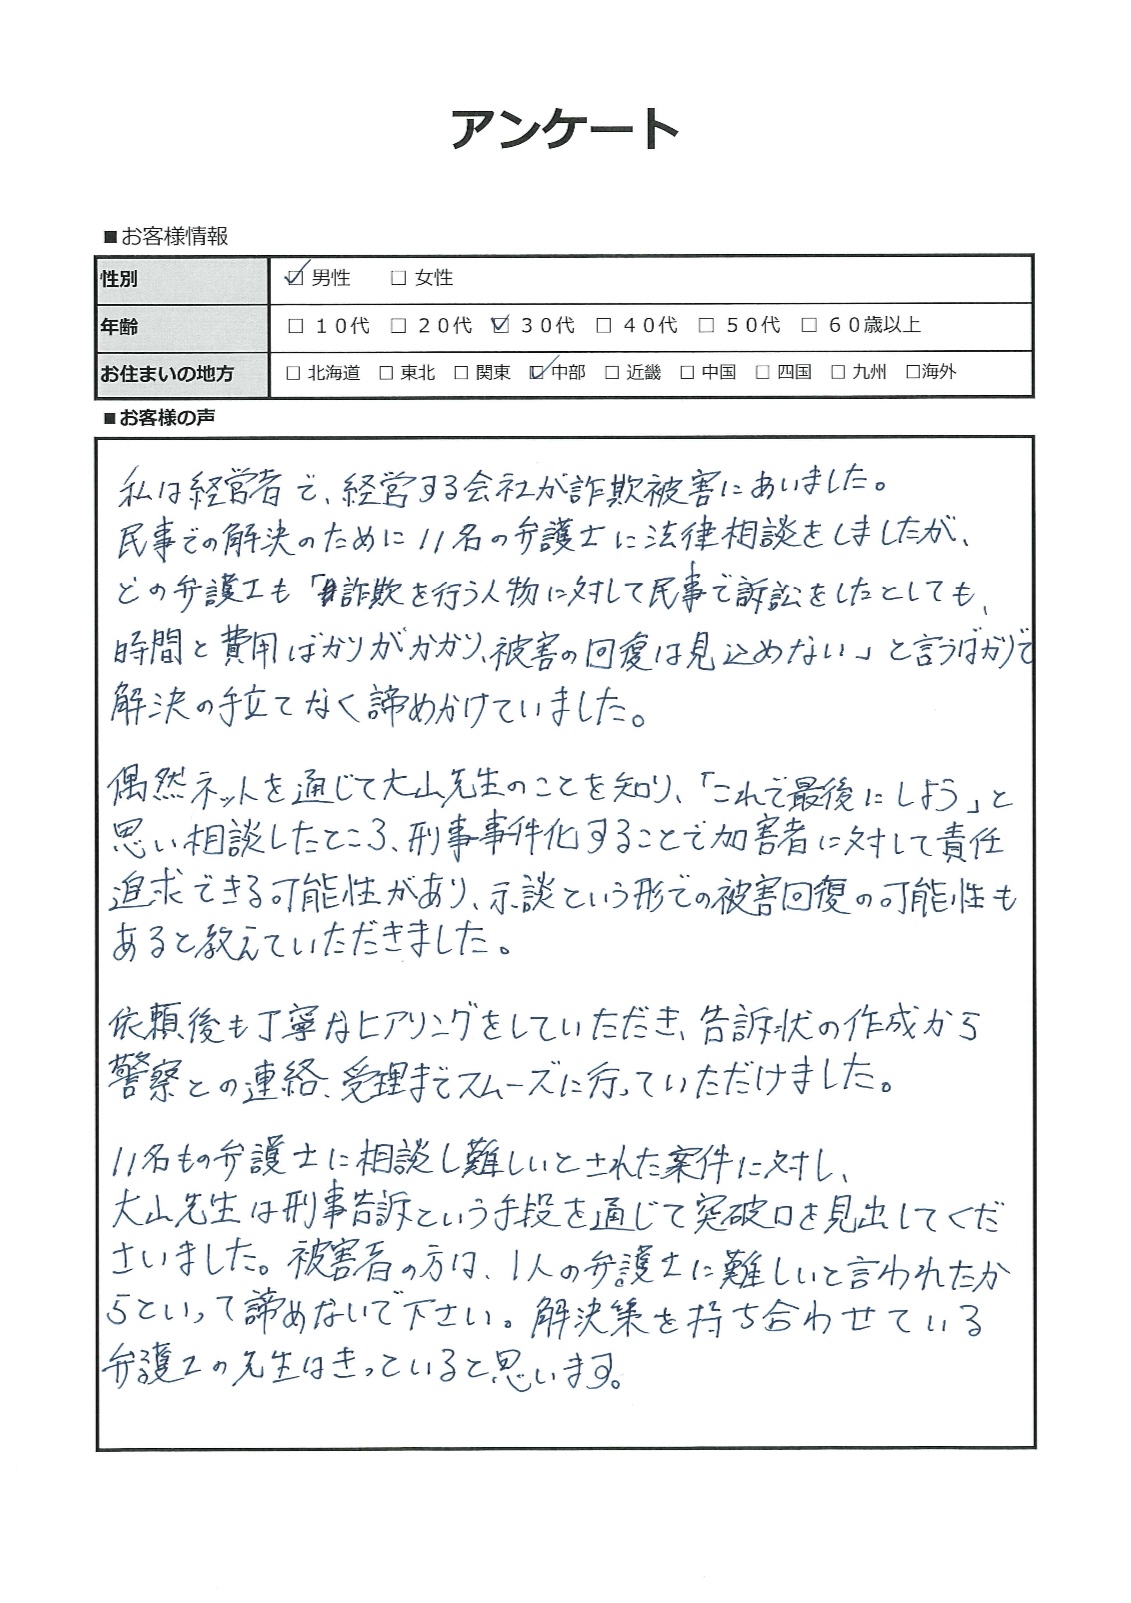 アンケート
■お客様情報
性別 ☑ 男性 □ 女性
年齢 □ 10代 □ 20代 ☑ 30代 □ 40代 □ 50代 □ 60歳以上
お住まいの地方 □ 北海道 □ 東北 □ 関東 ☑ 中部 □ 近畿 □ 中国 □ 四国 □ 九州 □海外
■お客様の声
私は経営者で、経営する会社が詐欺被害にあいました。
民事での解決のために11名の弁護士に法律相談をしましたが、
どの弁護士も「詐欺を行う人物に対して民事で訴訟をしたとしても、
時間と費用ばかりがかかり、被害の回復は見込めない」と言うばかりで
解決の手立てなく諦めかけていました。
偶然ネットを通じて大山先生のことを知り、「これで最後にしよう」と
思い相談したところ、刑事事件化することで加害者に対して責任
追求できる可能性があり、示談という形での被害回復の可能性も
あると教えていただきました。
依頼後も丁寧なヒアリングをしていただき、告訴状の作成から
警察との連絡、受理までスムーズに行っていただけました。
11名もの弁護士に相談し難しいとされた案件に対し、
大山先生は刑事告訴という手段を通じて突破口を見出してくだ
さいました。被害者の方は、1人の弁護士に難しいと言われたか
らといって諦めないで下さい。解決策を持ち合わせている
弁護士の先生はきっていると思います。